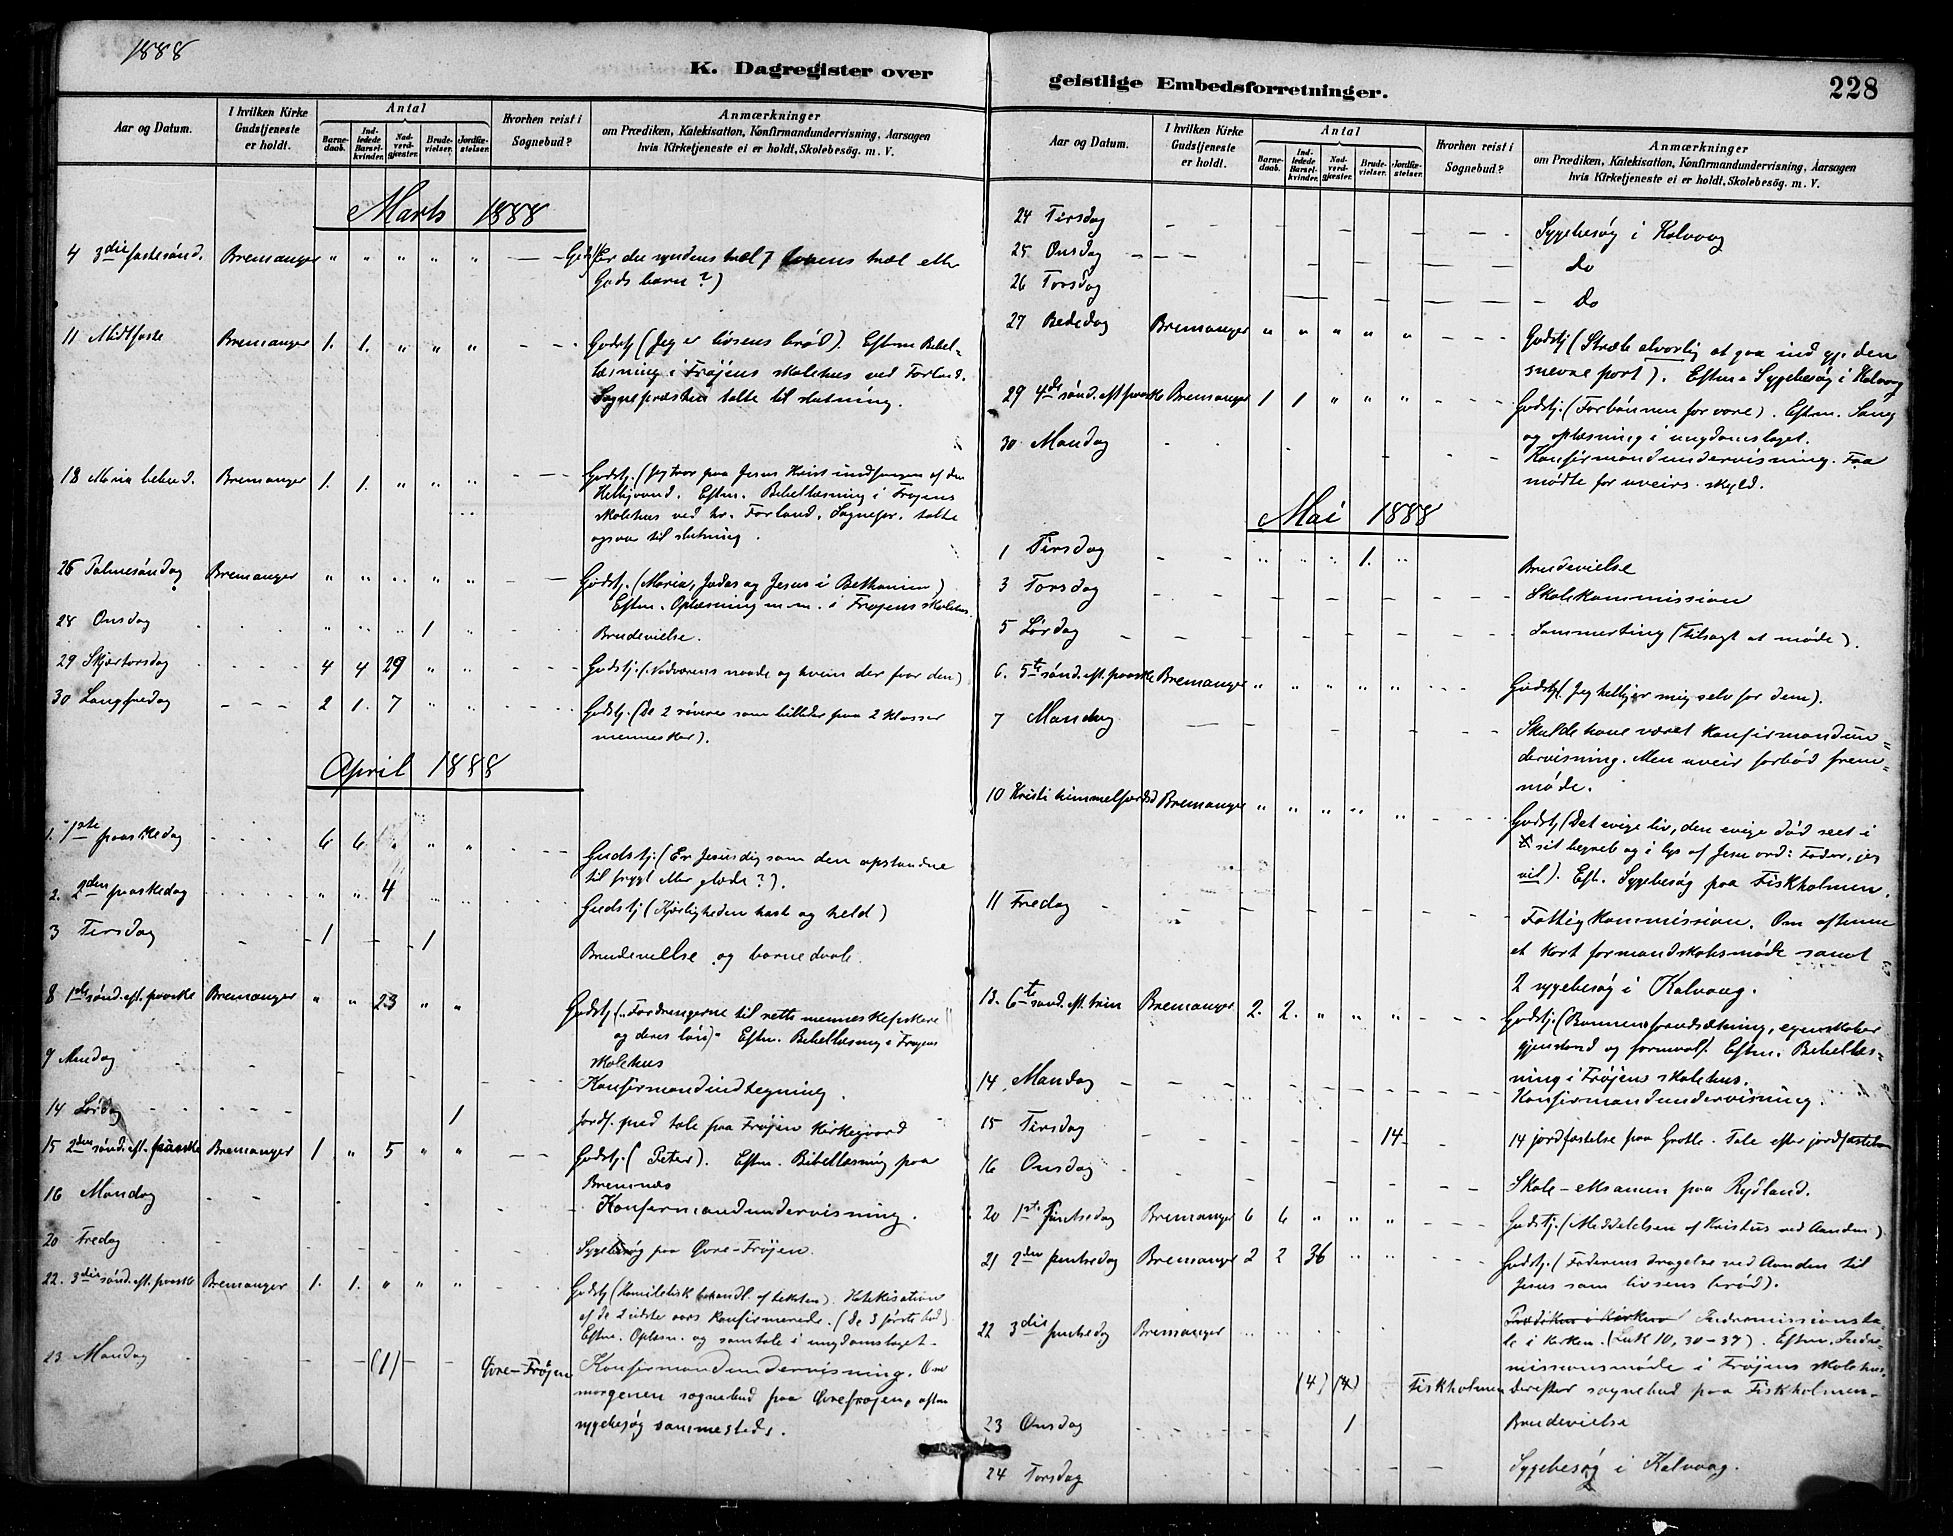 1888
K. Dagregister over
Aar og Datum.
I hvilken Kirke Gudstjeneste er holdt.
Antal
Barnedaab.
Indledede Barselkvinder.
Nadverdgjæster.
Brudevielser.
Jordfæstelser.
Hvorhen reist i Sognebud?
Anmærkninger
om Prædiken, Katekisation, Konfirmandundervisning, Aarsagen
hvis Kirketjeneste ei er holdt, Skolebesøg. m. V.
Marts 1888
4 3die fastesønd. Bremanger " " " " " — — Gdstj (Er du syndens træl, lovens træl eller
Guds barn?)
11 Midtfaste Bremanger 1. 1. " " " - - - Gudstj (Jeg er livsens brød). Eftm Bibel-
læsning i Frøjens skolehus ved Forland.
Sognepræsten talte til slutning.
18 Maria bebud. Bremanger 1. 1. " " " - — - Gudstj. (Jeg tror paa Jesus Krist undfangen af den
Helligaand. Eftm. Bibellæsning i Frøjens
skolehus ved hr. Forland. Sognepr. talte
ogsaa til slutning.
25 Palmesøndag Bremanger " " " " " - — Gudstj. (Maria, Judas og Jesus i Bethanien)
Eftm. Oplæsning m. m. i Frøjens skolehus.
28 Onsdag " " " 1 " Brudevielse.
29 Skjærtorsdag 4 4 29 " " Gudstj. (Nadverens naade og hvem der faar den)
30 Langfredag - - - 2 1. 7 " " Gudstj. (De 2 røvere som billeder paa 2 klasser
mennesker).
April 1888
1. 1ste paaskedag 6 6 " " " Gudstj. (Er Jesus dig som den opstandne
til frygt eller glæde?).
2. 2den paaskedag " " 4 Gudstj (Kjærligheden hast og held)
3 Tirsdag - 1 — 1 Brudevielse og barnedaab.
8 1ste sønd. eft. paaske Bremanger " " 23 " " Gudstj. ("Fordringerne til rette menneskefiskere
og deres løn)" Eftm. Bibellæsning i Frøjens
skolehus
9 Mandag Konfirmandindtegning.
14 Lørdag 1 Jordf. med tale paa Frøjen Kirkegaard
15 2den sønd. eft. paaske Bremanger 1 " 5 " " Gudstj. (Peter). Eftm. Bibellæsning paa
Bremnæs
16 Mandag Konfirmandundervisning.
20 Fredag Sygebesøg paa Øvre-Frøjen.
22. 3die sønd. eft. paaske Bremanger 1. 1. " " " Gudstj (Homiletisk behandl. af teksten). Katekisation
af de 2 sidste aars konfirmerede. (De 3 første bud)
Eftm. Oplæsn. og samtale i ungdomslaget.
23 Mandag (1) Øvre-Frøjen Konfirmandundervisning. Om
morgenen sognebud paa Øvrefrøjen, aften
sygebesøg sammesteds.
geistlige Embedsforretninger.
228
Aar og Datum.
I hvilken Kirke Gudstjeneste er holdt.
Antal
Barnedaab.
Indledede Barselkvinder.
Nadverdgjæster.
Brudevielser.
Jordfæstelser.
Hvorhen reist i Sognebud?
Anmærkninger
om Prædiken, Katekisation, Konfirmandundervisning, Aarsagen
hvis Kirketjeneste ei er holdt, Skolebesøg. m. V.
24 Tirsdag Sygebesøg i Kalvaag
25 Onsdag Do
26 Torsdag Do
27 Bededag Bremanger " " " " " Gudstj (Stræb alvorlig at gaa ind gj. den
snevre port). Eftm. Sygebesøg i Kalvaag
29 4de sønd. eft. paaske Bremanger 1 1 " " " Gudstj. (Forbønnen for vore). Eftm. Sang
og oplæsning i ungdomslaget.
30 Mandag Konfirmandundervisning. Faa
mødte for uveirs skyld.
Mai 1888
1 Tirsdag " " " 1. " Brudevielse
3 Torsdag Skolekommission
5 Lørdag Sommerting (Tilsagt at møde).
6. 5te sønd. eft. paaske Bremanger " " " " " Gudstj. (Jeg helliger mig selv for dem).
7 Mandag Skulde have været konfirmandun-
dervisning. Men uveir forbød frem-
møde.
10 Kristi himmelfartsd Bremanger " " " " " Gudstj (Det evige liv, den evige død seet i
sit begreb og i lys af Jesu ord: Fader, jeg
vil). Eft. Sygebesøg paa Fiskholmen.
11 Fredag Fattigkommission. Om aftenen
et kort formandskabsmøde samt
2 sygebesøg i Kalvaag.
13. 6te sønd. eft. trin Bremanger 2. 2. " " " Gudstj. (Bønnens forudsætning, egenskaber
gjenstand og formaal). Eftm. Bibellæs-
ning i Frøjens skolehus.
14. Mandag Konfirmandundervisning.
15 Tirsdag 14 14 jordfæstelse paa Grotle. Tale efter jordfæstelsen
16 Onsdag Skole-eksamen paa Rydland.
20 1ste pintsedag Bremanger 6 6 " " " Gudstj. (Meddelelsen af Kristus ved Aanden)
21 2den pintsedag Bremanger 2 2 36 " " Gudstj. (Faderens dragelse ved Aanden til
Jesus som livsens brød).
22 3die pintsedag Bremanger Prædiken i kirken Indremissionsta-
le i kirken. (Luk 10, 30-37). Eftm. Indre-
missionsmøde i Frøjens skolehus,
(4) (4) Fiskholmen derefter sognebud paa Fiskholmen.
23 Onsdag 1 Brudevielse
24 Torsdag Sygebesøg i Kalvaag.